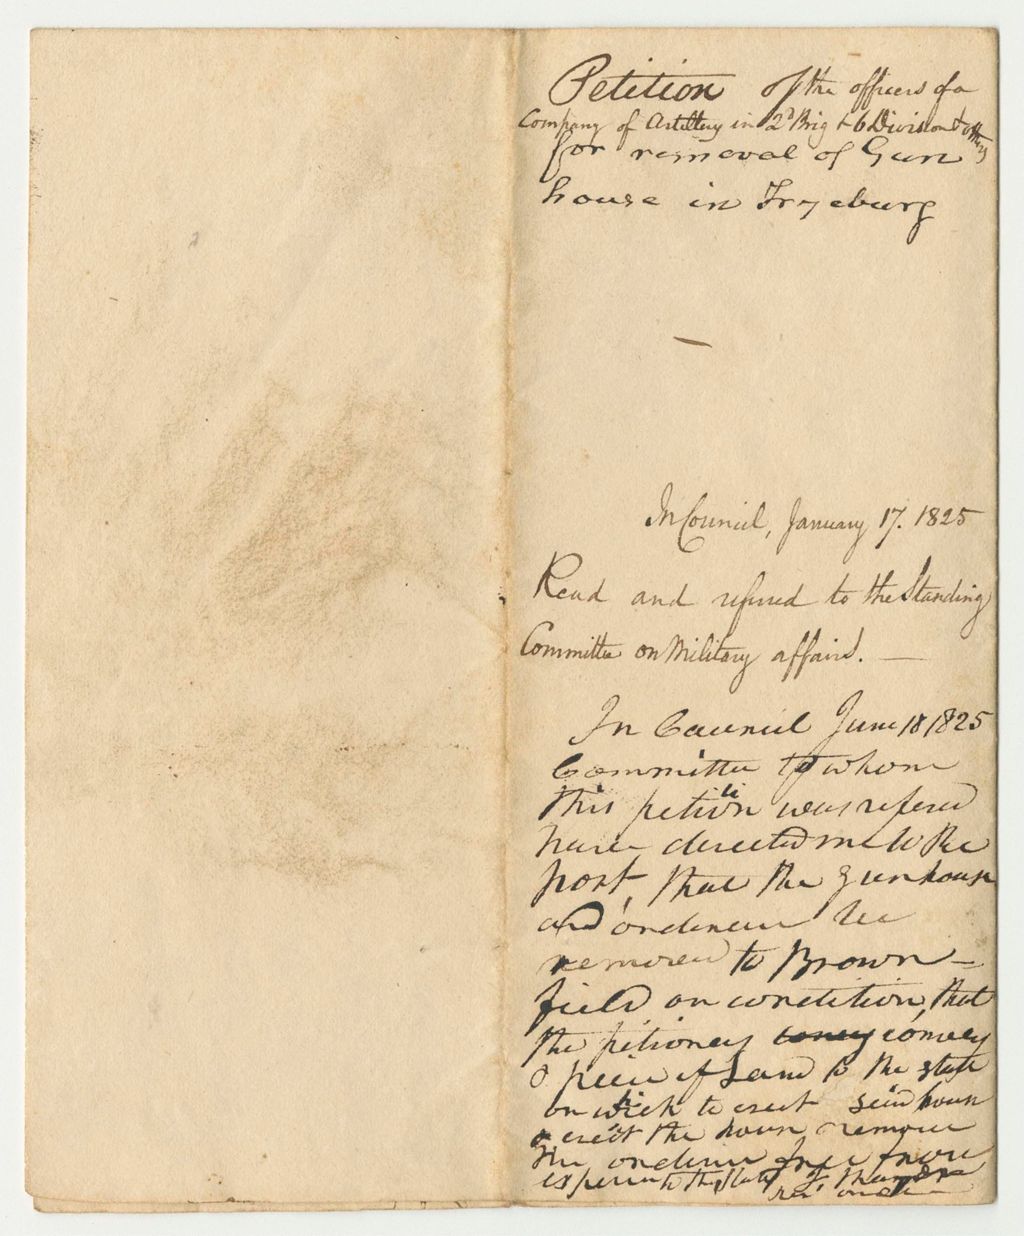 Petition of the officers of a
Company of Artillery in 2d Brig & 6 Division & others
for removal of Gun
house in Fryeburg
In Council, January 17. 1825
Read and refered to the Standing
Committee on Military affairs.
In Council June 18 1825
Committee to whom
this petition was refered
have directed me to Re
port, that the gunhouse
and ordenence be
removed to Brown-
field on condition, that
the petioners convey
a piece of Land to the state
on which to erect said house
erect the house remove
the ordenence free from
expence to the State